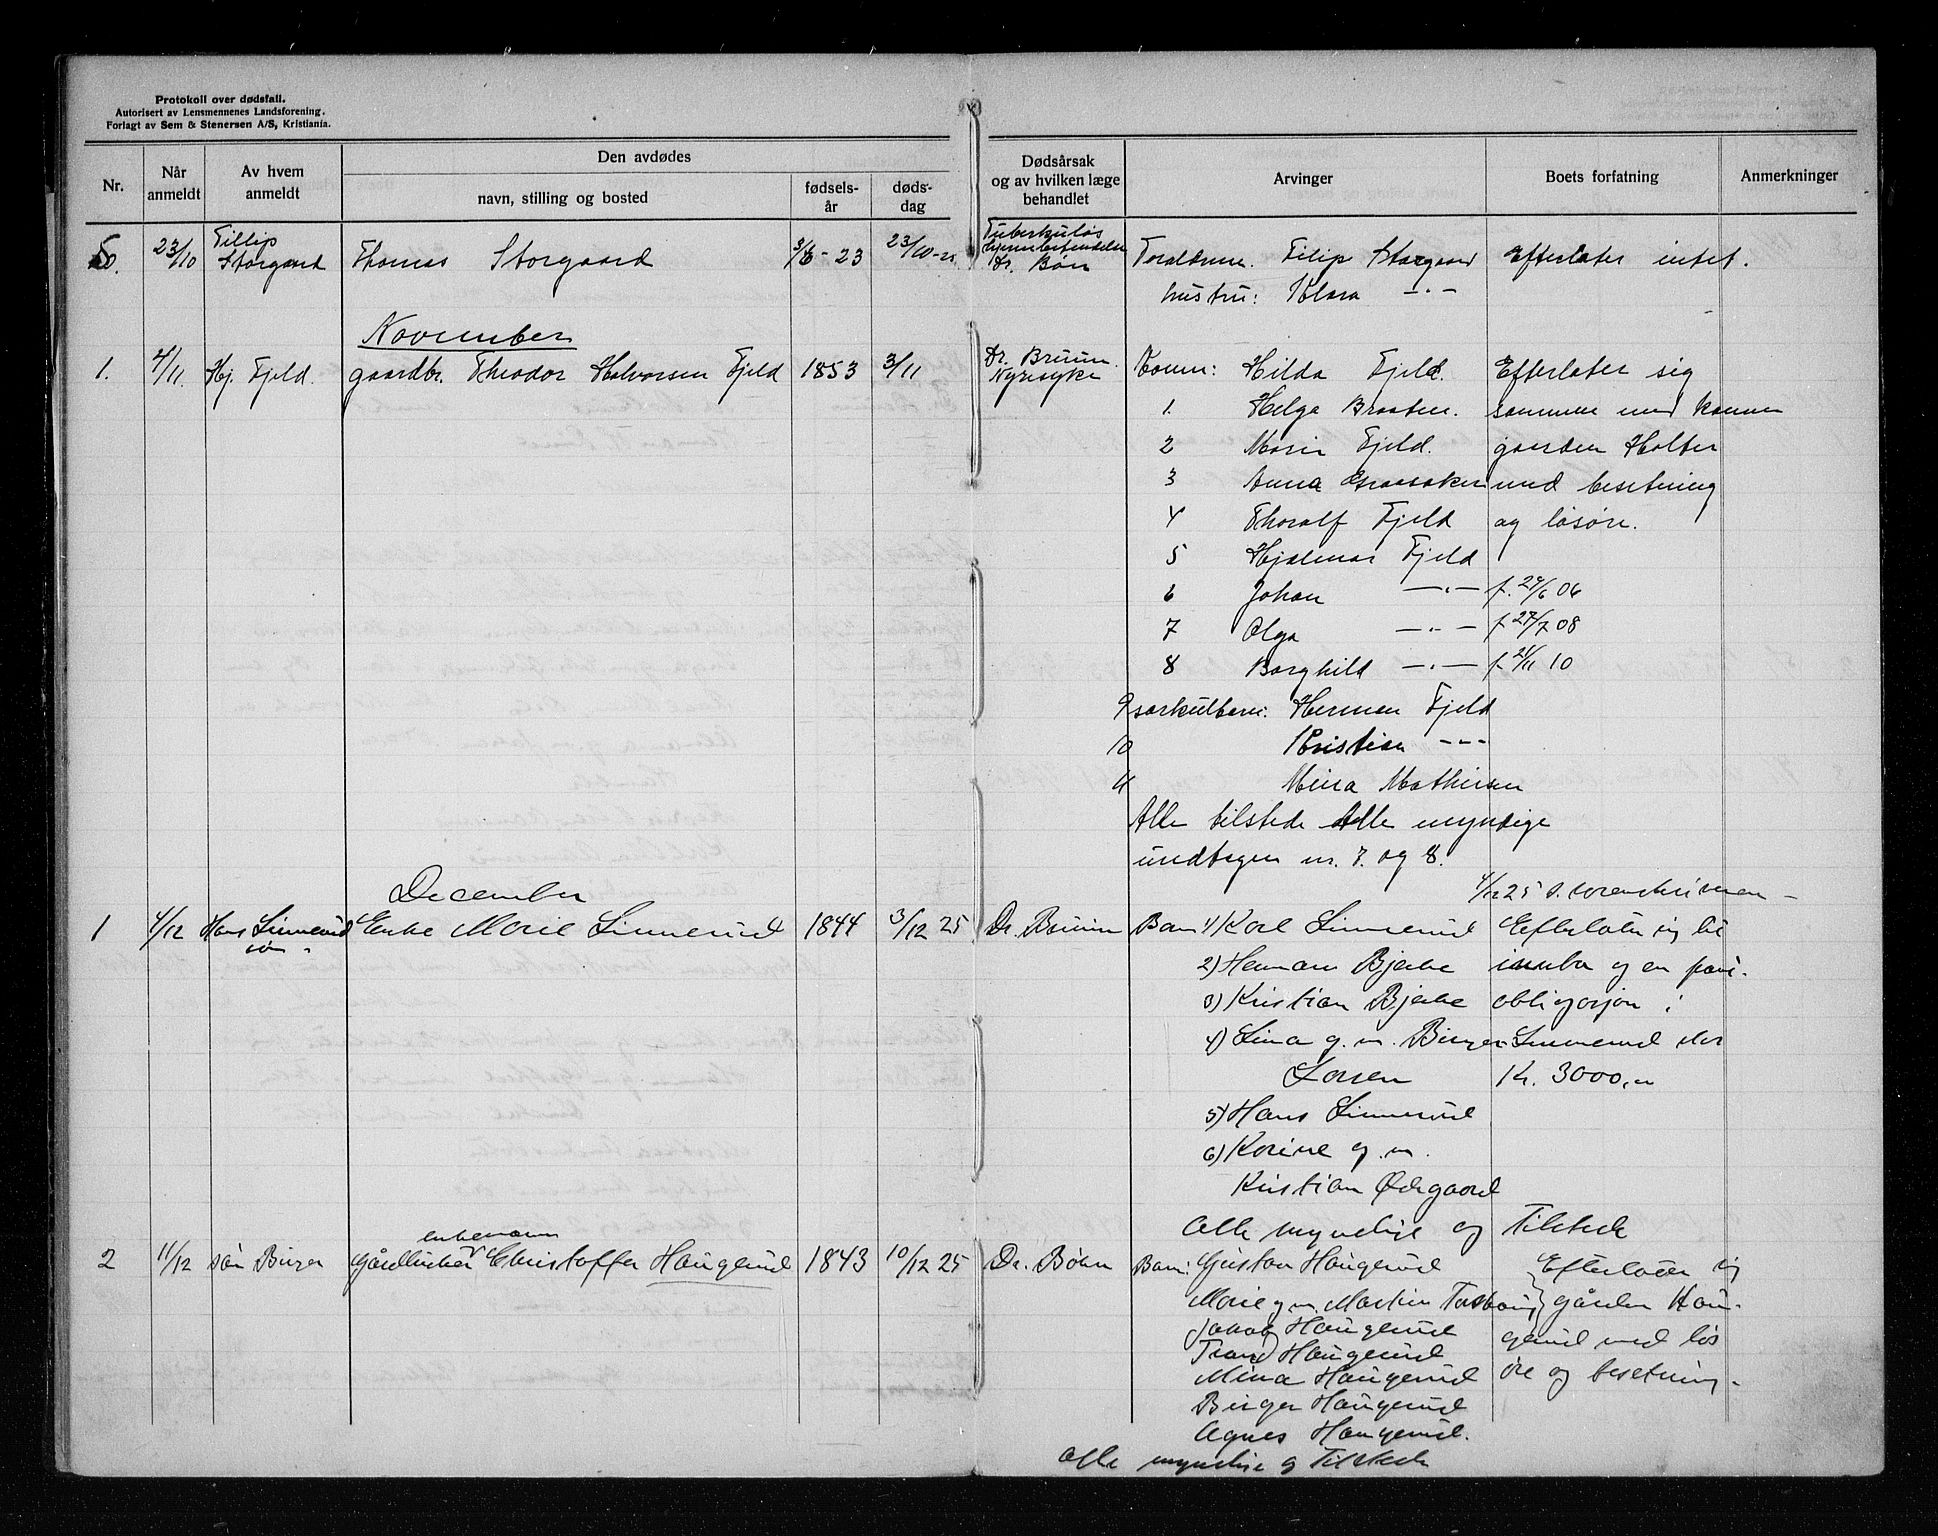 Protokoll over dødsfall.
Autorisert av Lensmennenes Landsforening.
Forlagt av Sem & Stenersen A/S, Kristiania.
Nr.
Når anmeldt
Av hvem anmeldt
Den avdødes
navn, stilling og bosted
fødsels-år
døds-dag
Dødsårsak og av hvilken læge behandlet
Arvinger
Boets forfatning
Anmerkninger
23/10 Fillip Storgaard Thomas Storgaard 3/6-23 23/10-25 Tuberkuløs hjernebetendelse Dr. Bøhn Forældrene. Filip Storgaard Efterlater intet.
hustru: Klara -"-
November
1. 4/11 Hj. Fjeld. gaardbr. Theodor Halvorsen Fjeld 1853 3/11 Dr. Bruun Nyresyke Konen: Hilda Fjeld. Efterlater sig
1. Helga Braaten. sammen med konen
2 Marie Fjeld. gaarden Holter
3 Anna Graasaker med besetning
4 Thoralf Fjeld og løsøre.
5 Hjalmar Fjeld
6 Johan -"- f. 29/6 06
7 Olga -"- f 27/7 08
8 Borghild -"- f. 21/11 10
9 særkulbarn: Herman Fjeld
10 Kristian -"-
11 Mina Mathisen
Alle tilstede Alle myndige
undtagen nr. 7. og 8.
December
4/12 25 s.
1 4/12 Hans Linnerud søn Enke Marie Linnerud 1844 3/12 25 Dr. Bruun Barn 1) Karl Linnerud Efterlater sig lit
2) Herman Bjerke innbo og en pant-
3) Kristian Bjerke obligasjon i
4) Lina g. m. Birger Linnerud stor
Larsen Kr. 3000,-
5) Hans Linnerud
6) Karine g. m.
Kristian Ødegaard
Alle myndige og Tilstede
2 11/12 søn Birger gårdbruker enkemann Christoffer Haugerud 1843 10/12 25 Dr. Bøhn Barn: Gustav Haugerud Efterlater sig
Marie g. m. Martin gården Hau-
Jakob Haugerud gerud med løs
Haugerud
Mina Haugerud øre og besetning.
Birger Haugerud
Agnes Haugerud.
Alle myndige og Tilstede